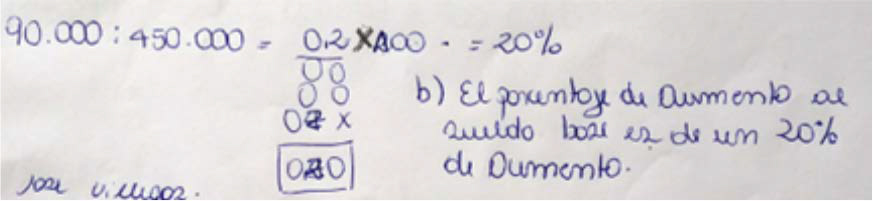 90.000 : 450.000 = 0.2 X 100 . = 20%
00
00
02 X
020
b) El porcentaje de Aumento al
sueldo base es de un 20%
de Aumento.